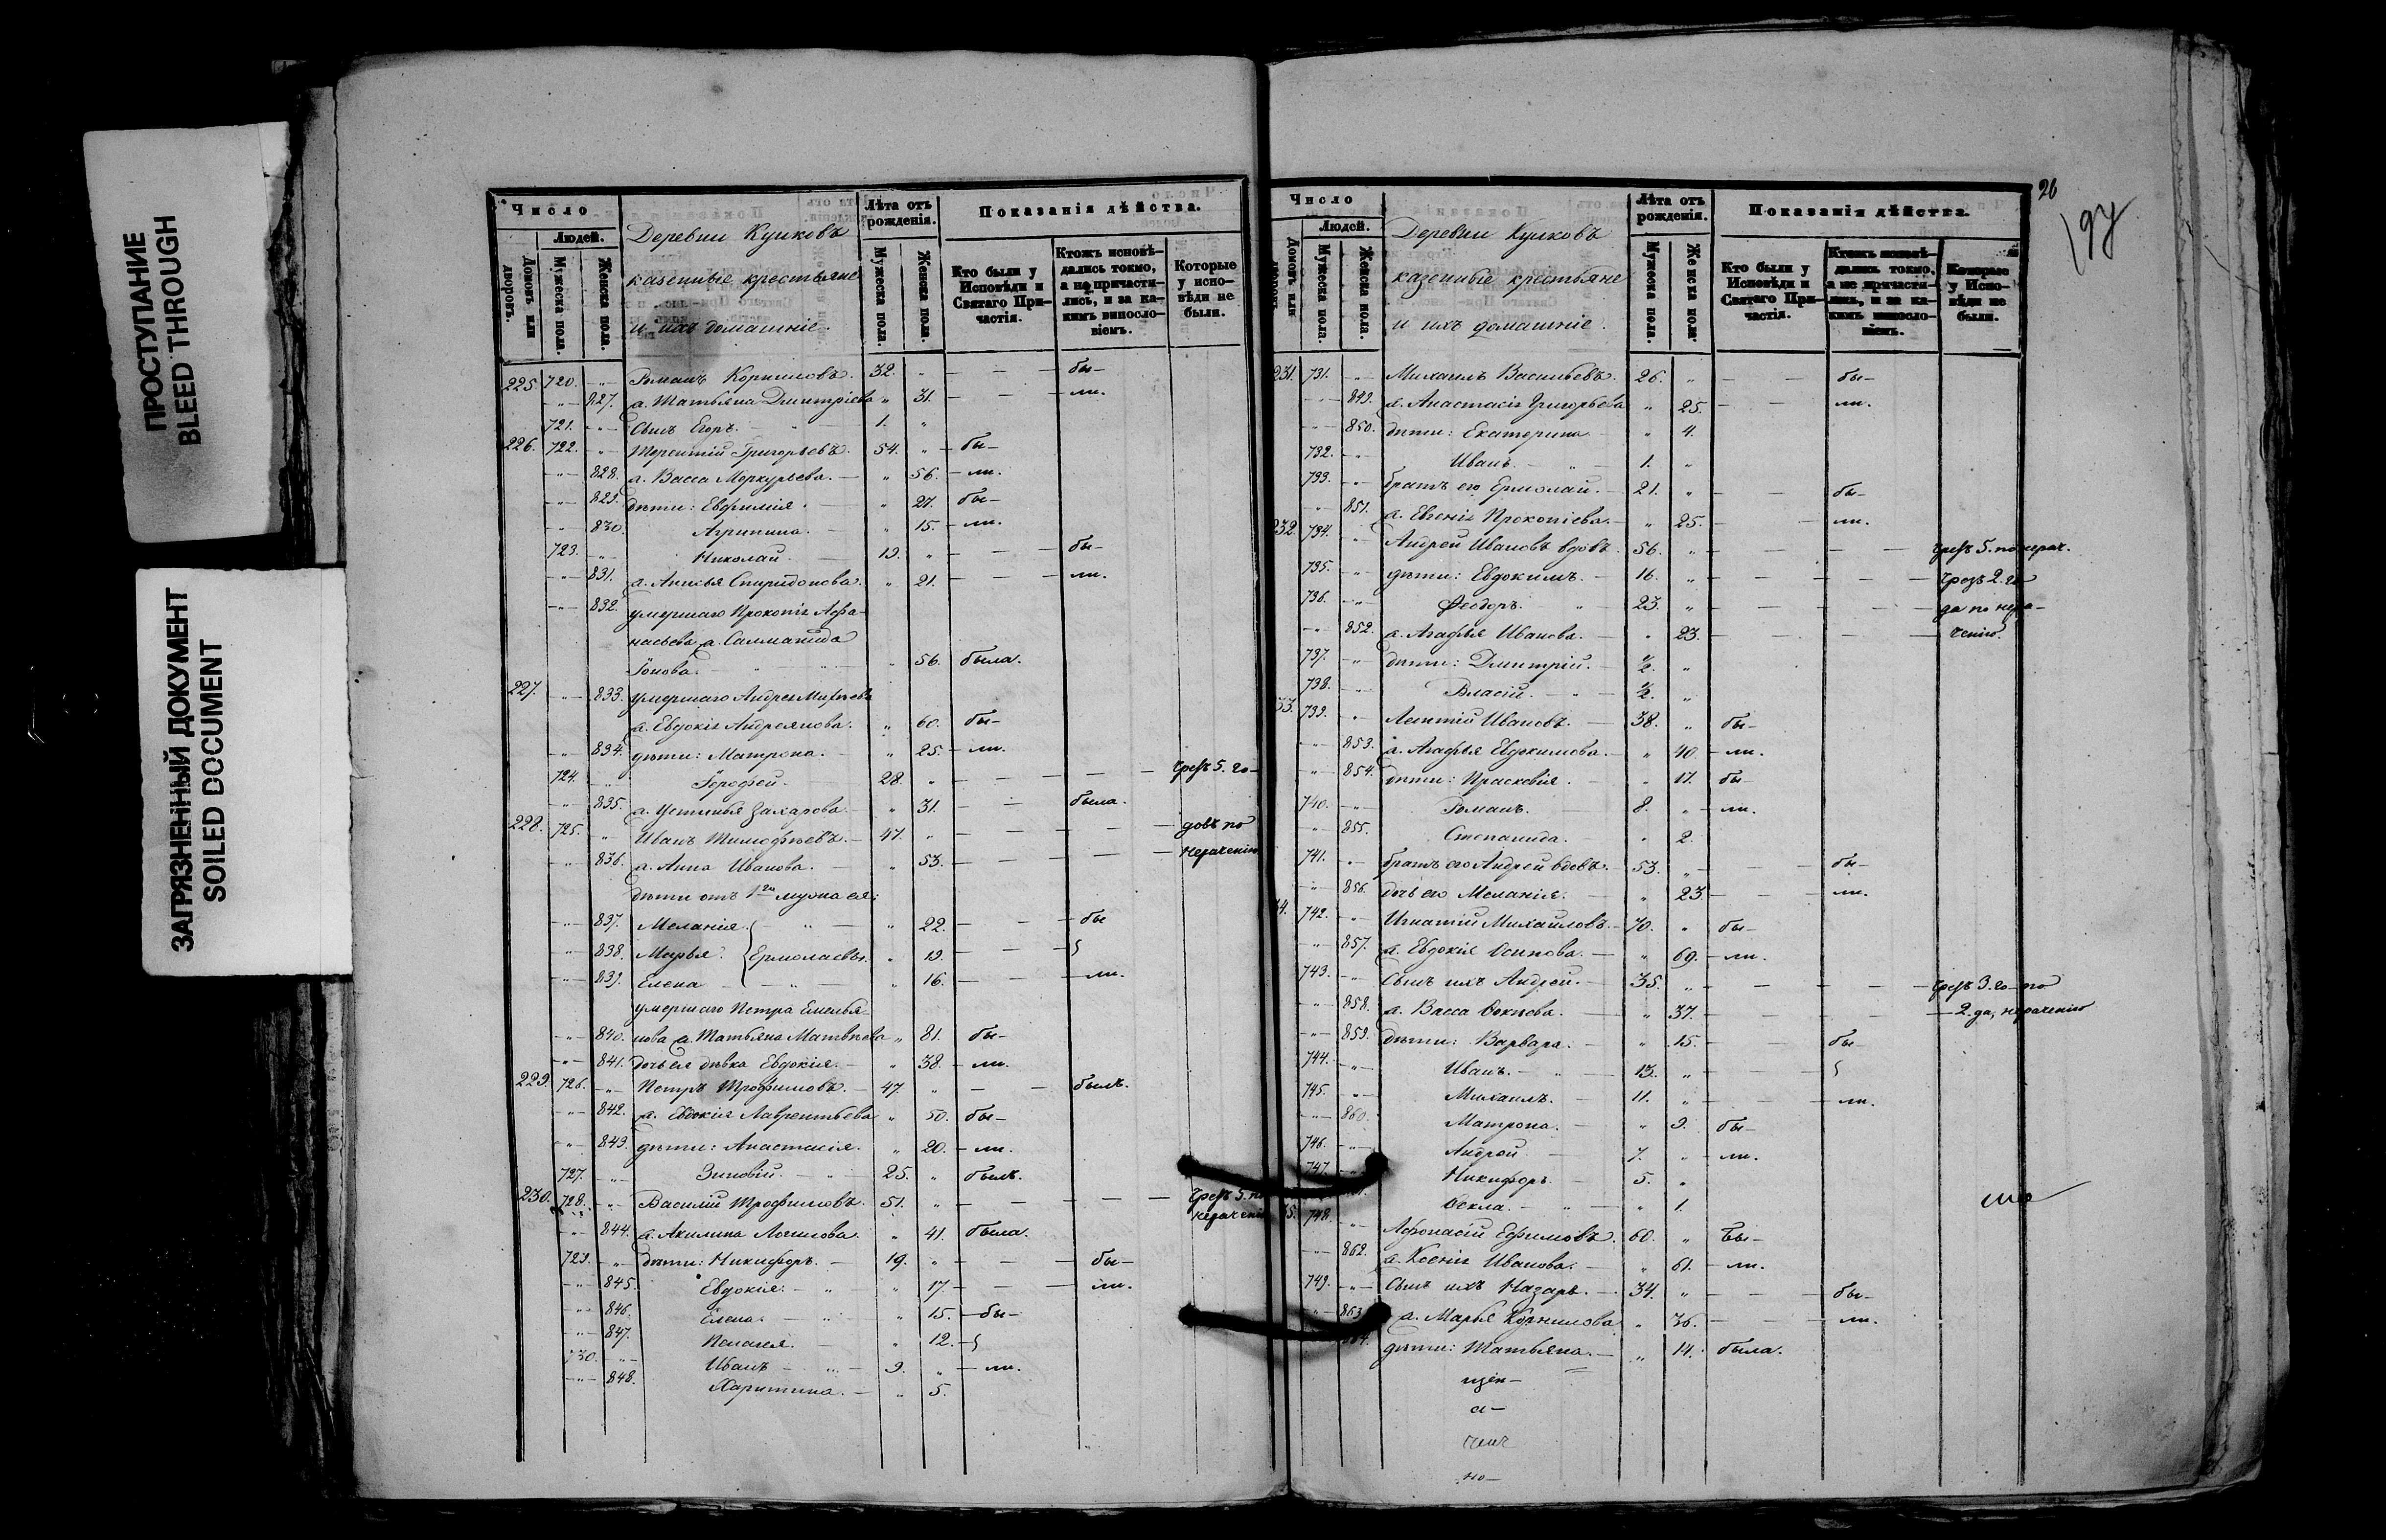 ПРОСТУПАНИЕ
BLEED THROUGH
ЗАГРЯЗНЕННЫЙ ДОКУМЕНТ
SOILED DOCUMENT
Число
Людей.
Домовъ или дворовъ.
Мужеска пола.
Женска пола.
Деревни Куиковъ
казенные крестьяне
и ихъ домашніе.
Лѣта отъ рожденія.
Мужеска пола.
Женска пола.
Показанія дѣйства.
Кто были у Исповѣди и Святаго Причастія.
Ктожъ исповѣ-
дались токмо,
а не причасти-
лись, и за ка-
кимъ виносло-
віемъ.
Которые у испо-
вѣди не были.
225. 720. -"- Романъ Корниловъ. 32. " — — — бы-
-"- 827. а. Татьяна Дмитріева " 31. — — — ли.
721. -"- Сынъ Егоръ. 1. "
226. 722. -"- Терентій Григорьевъ. 54. " — бы-
-"- 828. а. Васса Меркурьева. " 56. — ли.
-"- 829. дѣти: Евфимія. " 27. бы-
-"- 830. Агрипина. " 15. — ли.
723. -"- Николай. 19. " — — — бы-
-"- 831. а. Анисья Спиридонова. " 21. — — — ли.
-"- 832. умершаго Прокопія Афа-
насьева а. Саламанида
Іонова. " 56. была.
227. -"- 833. умершаго Андрея Михѣева
а. Евдокія Андреянова. " 60. бы-
-"- 834. дѣти: Матрона. " 25. — ли.
724. -"- Ерофей. 28. " — — — — — чрезъ 5. го-
-"- 835. а. Устинья Захарова. " 31. — — была.
228. 725. -"- Иванъ Тимофѣевъ. 47. " — — — — — довъ по
-"- 836. а. Анна Иванова. " 53. — — — — — нераченію
дѣти отъ 1го мужа ея:
-"- 837. Меланія " 22. — — — бы
-"- 838. Марья Ермолаевы. " 19. — — —
-"- 839. Елена " 16. — — — ли.
умершаго Петра Емелья-
-"- 840. нова а. Татьяна Матвѣева " 81. бы-
-"- 841. дочь ея дѣвка Евдокія. " 38. — ли.
229. 726. -"- Петръ Трофимовъ. 47. " — — былъ.
-"- 842. а. Евдокія Лаврентьева " 50. бы-
-"- 843. дѣти: Анастасія. " 20. — ли.
727. -"- Зиновій. 25. " былъ.
230. 728. -"- Василій Трофимовъ. 51. " — — — — — чрезъ 5. по
нераченію
-"- 844. а. Акилина Логинова. " 41. была.
729. -"- дѣти: Никифоръ. 19. " — — — бы-
-"- 845. Евдокія. " 17. — — ли.
-"- 846. Елена. " 15. — бы-
-"- 847. Пелагея. " 12. —
730. -"- Иванъ 9. " — ли.
-"- 848. Харитина. " 5.
26
Число
Людей.
Домовъ или
Мужеска пола.
Женска пола.
Деревни Куиковъ
казенные крестьяне
и ихъ домашніе.
Лѣта отъ рожденія.
Мужеска пола.
Женска пола.
Показанія дѣйства.
Кто были у Исповѣди и Святаго Причастія.
Ктожъ исповѣ-
дались токмо,
а не причасти-
лись, и за ка-
кимъ виносло-
віемъ.
Которые у Испо-
вѣди не были.
231. 731. -"- Михаилъ Васильевъ. 26. " — — бы-
-"- 849. а. Анастасія Григорьева " 25. — — ли.
-"- 850. дѣти: Екатерина. " 4.
732. -"- Иванъ. 1. "
733. -"- братъ его Ермолай. 21. " — — бы-
" 851. а. Евгенія Прокопіева. " 25. — ли.
232. 734. -"- Андрей Ивановъ вдовъ. 56. " — — — — чрезъ 5. по нерач.
735. -"- дѣти: Евдокимъ. 16. " — — — — — чрезъ 2. го-
736. -"- Феодоръ. 23. " — — — — — да по нера-
-"- 852. а. Агафья Иванова. " 23. — — — — ченію.
737. -"- дѣти: Дмитрій. ½. "
738. -"- Власій. ½. "
33. 739. -"- Леонтій Ивановъ. 38. " бы-
-"- 853. а. Агафья Евдокимова. " 40. — ли.
-"- 854. дѣти: Прасковія. " 17. бы-
740. -"- Романъ. 8. " — ли.
" 855. Степанида. " 2.
741. -"- братъ его Андрей вдовъ. 53. " — — бы-
-"- 856. дочь его Меланія. " 23. — — ли.
34. 742. -"- Игнатій Михайловъ. 70. " бы-
-"- 857. а. Евдокія Осипова. " 69. — ли.
743. -"- Сынъ ихъ Андрей. 35. " — — — — — чрезъ 3. го- по
-"- 858. а. Васса Фокгова. " 37. — — — — 2. да, нераченію
-"- 859. дѣти: Варвара. " 15. — — бы-
744. -"- Иванъ. 13. " — —
745. -"- Михаилъ. 11. " — — ли.
-"- 860. Матрона. " 9. бы-
746. -"- Андрей 7. " — ли.
747. -"- Никифоръ. 5. "
Фекла. " 1.
35. 748. -"- Афонасій Ефимовъ. 60. " Бы-
-"- 862. а. Ксенія Иванова. " 61. — ли.
749. -"- Сынъ ихъ Назаръ. 34. " — — — бы-
-"- 863. а. Марья Корнилова " 36. — — — ли.
864. дѣти: Татьяна. " 14. была.
щен-
а-
чик
но-